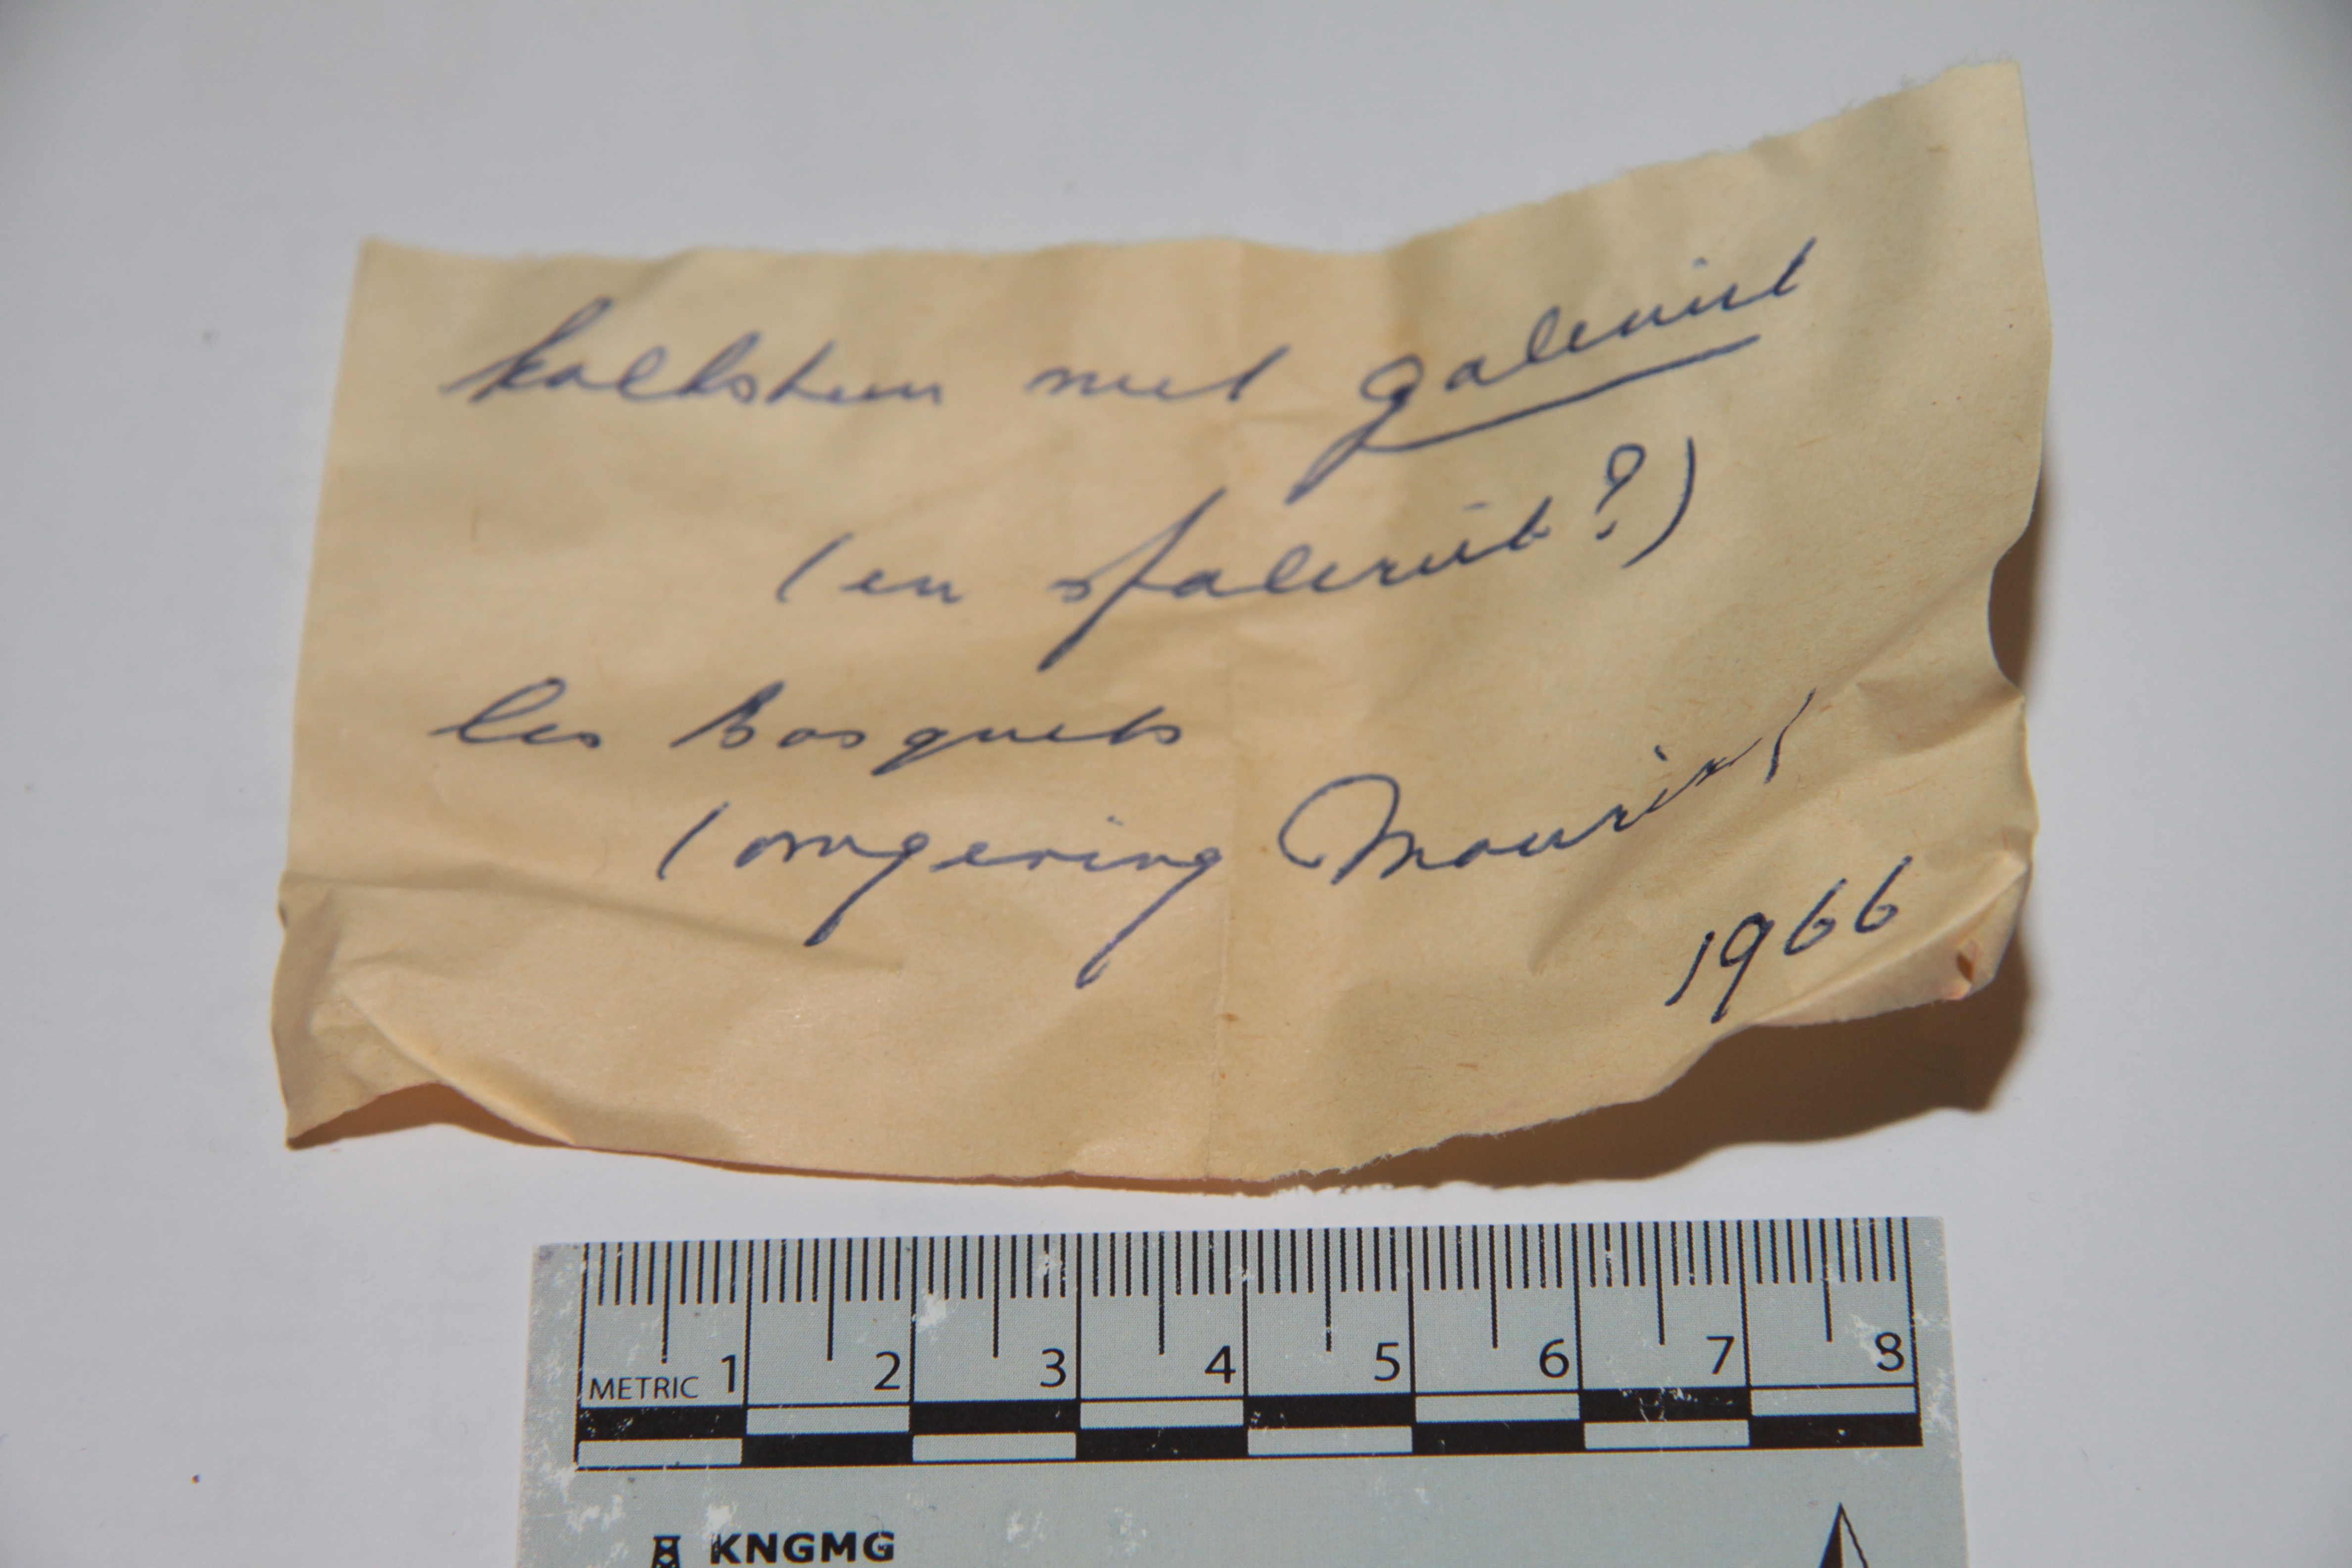 kalksteen met galeniet
(en sfaleriet?)
les Bosquets
(omgeving Mouriès)
1966
1 2 3 4 5 6 7 8
METRIC
KNGMG